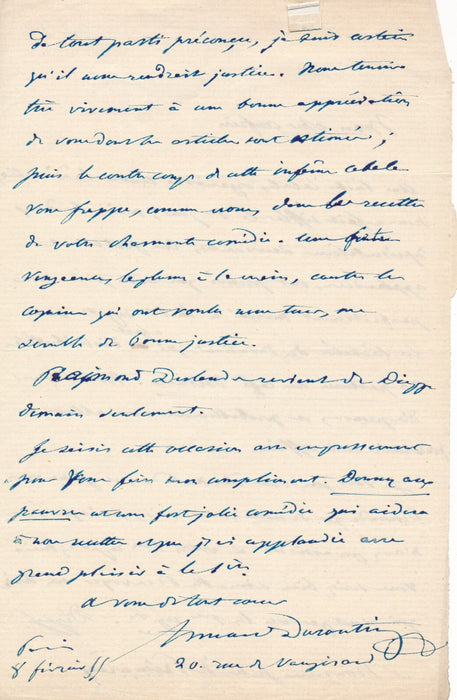 de tout parti préconçu, je suis certain
qu'il nous rendrait justice. Nous tenions
très vivement à une bonne appréciation
de vous dont les articles sont estimés ;
puis le contre coup de cette infâme cabale
vous frappe, comme nous, dans les recettes
de votre charmante comédie. Une
vengeance, la plume à la main, contre les
coquins qui ont voulu nous tuer, me
semble de bonne justice.
Raymond Deslandes revient de Dieppe
demain seulement.
Je saisis cette occasion avec empressement
pour vous faire mon compliment. Donnez aux
pauvres est une fort jolie comédie qui aidera
à nos recettes et que j'ai applaudie avec
grand plaisir à la
à vous de tout coeur
Armand Durantin
Paris
8 février 55
20. rue de Vaugirard